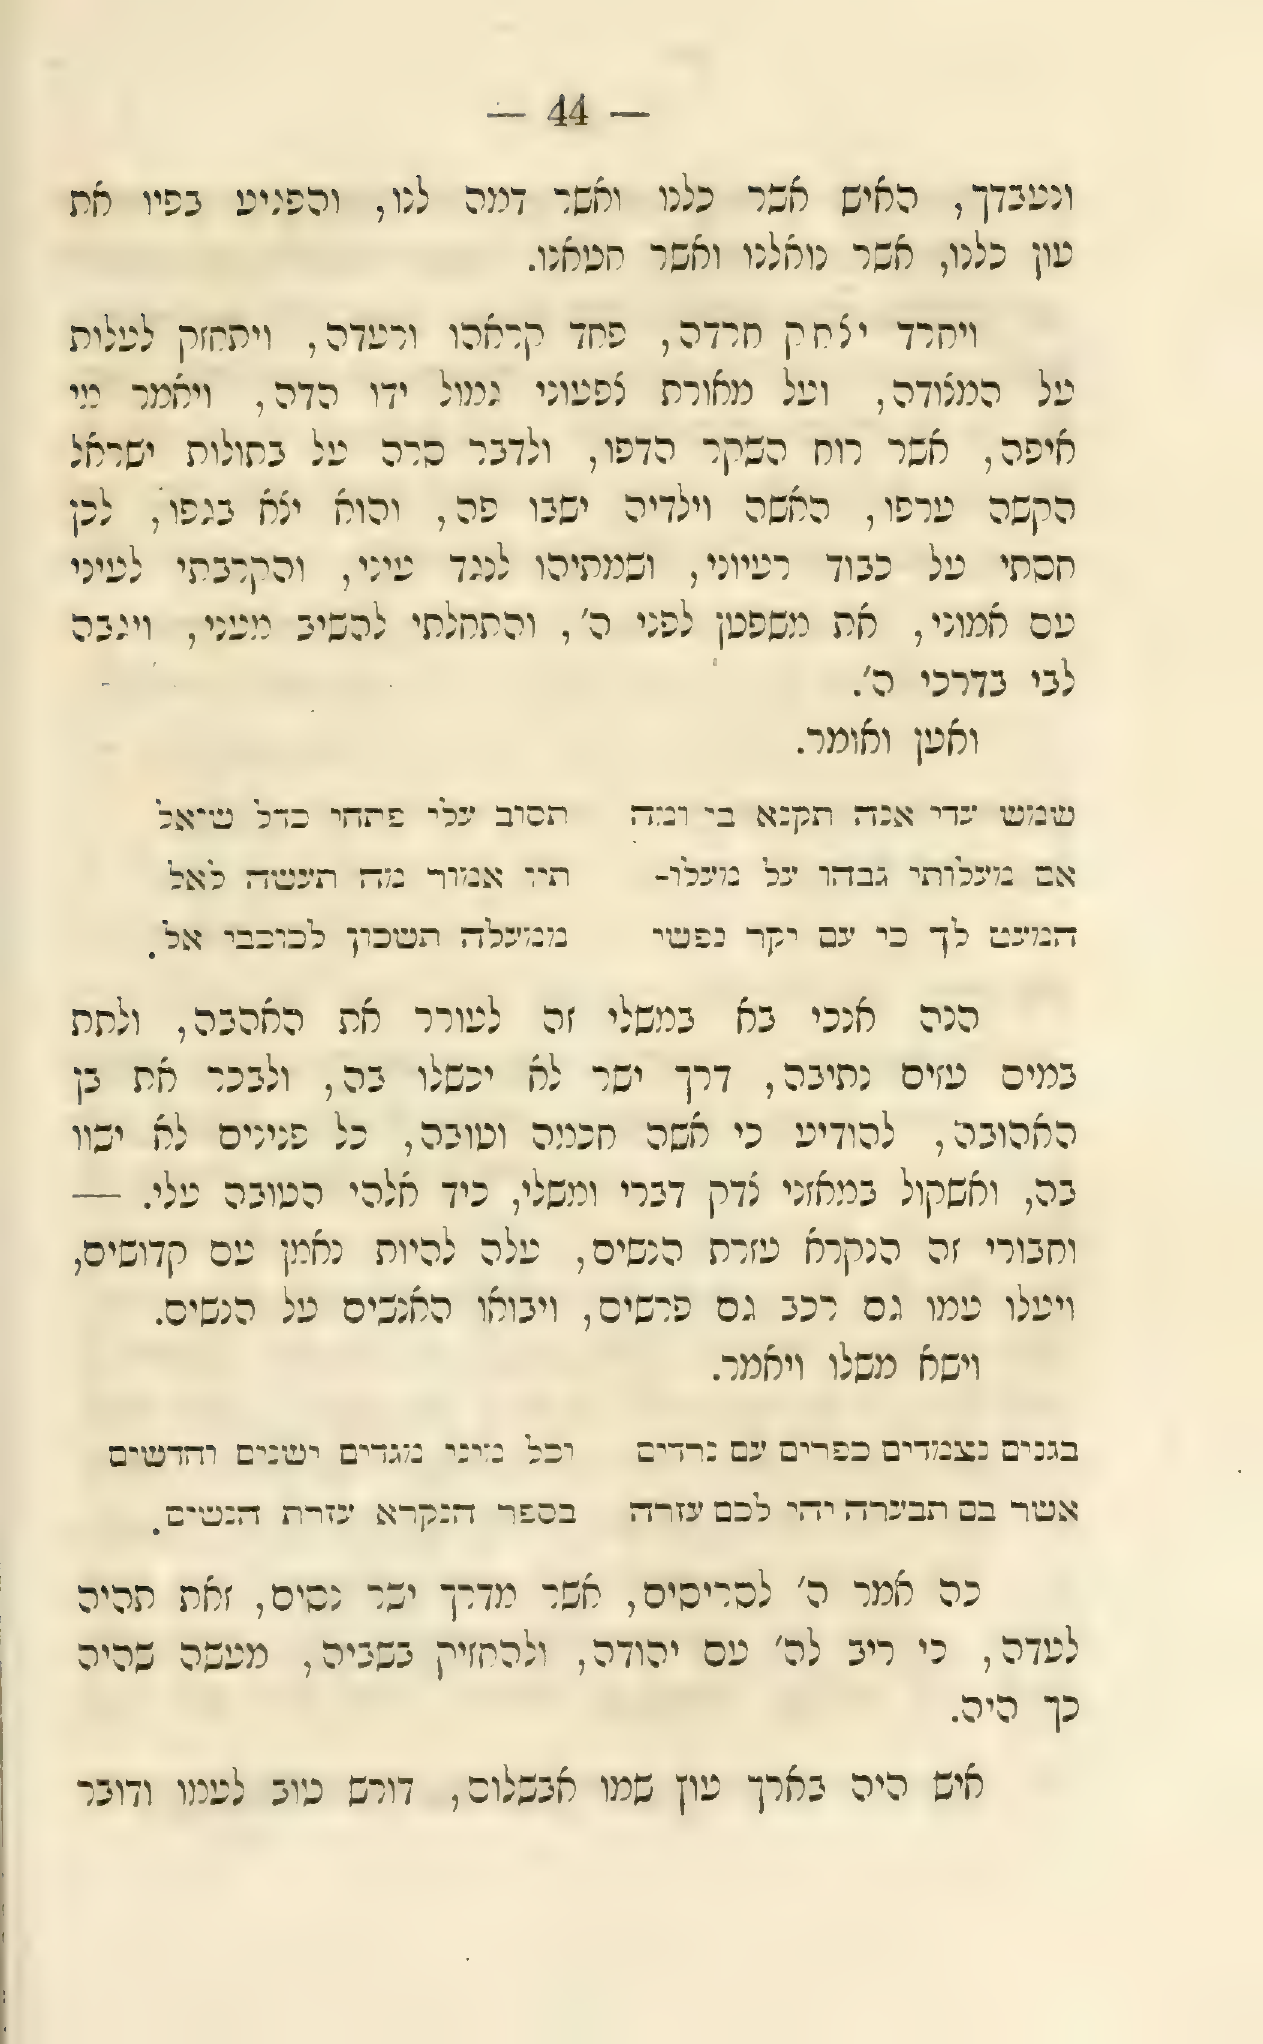 — 44 —
ונעבדך, האיש אשר כלנו ואשר דמה לנו, והפגיע בפיו את
עון כלנו, אשר נואלנו ואשר חטאנו.
ויחרד יצחק חרדה, פחד קראהו ורעדה, ויתחזק לעלות
על המצודה, ועל מאורת צפעוני גמול ידו הדה, ויאמר מי
איפה, אשר רוח השקר הדפו, ולדבר סרה על בתולות ישראל
הקשה ערפו, האשה וילדיה ישבו פה, והוא יצא בגפו, לכן
חסתי על כבוד רעיוני, ושמתיהו לנגד עיני, והקרבתי לעיני
עם אמוני, את משפטן לפני ה', והתחלתי להשיב מעני, ויגבה
לבי בדרכי ה'.
ואען ואומר.
שמש עדי אנה תקנא בי ומה תסוב עלי פתחי כדל שואל
אם מעלותי גבהו על מעלו- תיו אמור מה תעשה לאל
המעט לך כי עם יקר נפשי ממעלה תשכון לכוכבי אל.
הנה אנכי בא במשלי זה לעורר את האהבה, ולתת
במים עזים נתיבה, דרך ישר לא יכשלו בה, ולבכר את בן
האהובה, להודיע כי אשה חכמה וטובה, כל פנינים לא ישוו
בה, ואשקול במאזני צדק דברי ומשלי, כיד אלהי הטובה עלי. —
וחבורי זה הנקרא עזרת הנשים, עלה להיות נאמן עם קדושים,
ויעלו עמו גם רכב גם פרשים, ויבואו האנשים על הנשים.
וישא משלו ויאמר.
בגנים נצמדים כפרים עם נרדים וכל מיני מגדים ישנים וחדשים
אשר בם תבערה יהי לכם עזרה בספר הנקרא עזרת הנשים.
כה אמר ה' לסריסים, אשר מדרך ישר נסים, זאת תהיה
לעדה, כי ריב לה' עם יהודה, ולהחזיק בשביה, מעשה שהיה
כך היה.
איש היה בארץ עוץ שמו אבשלום, דורש טוב לעמו ודובר